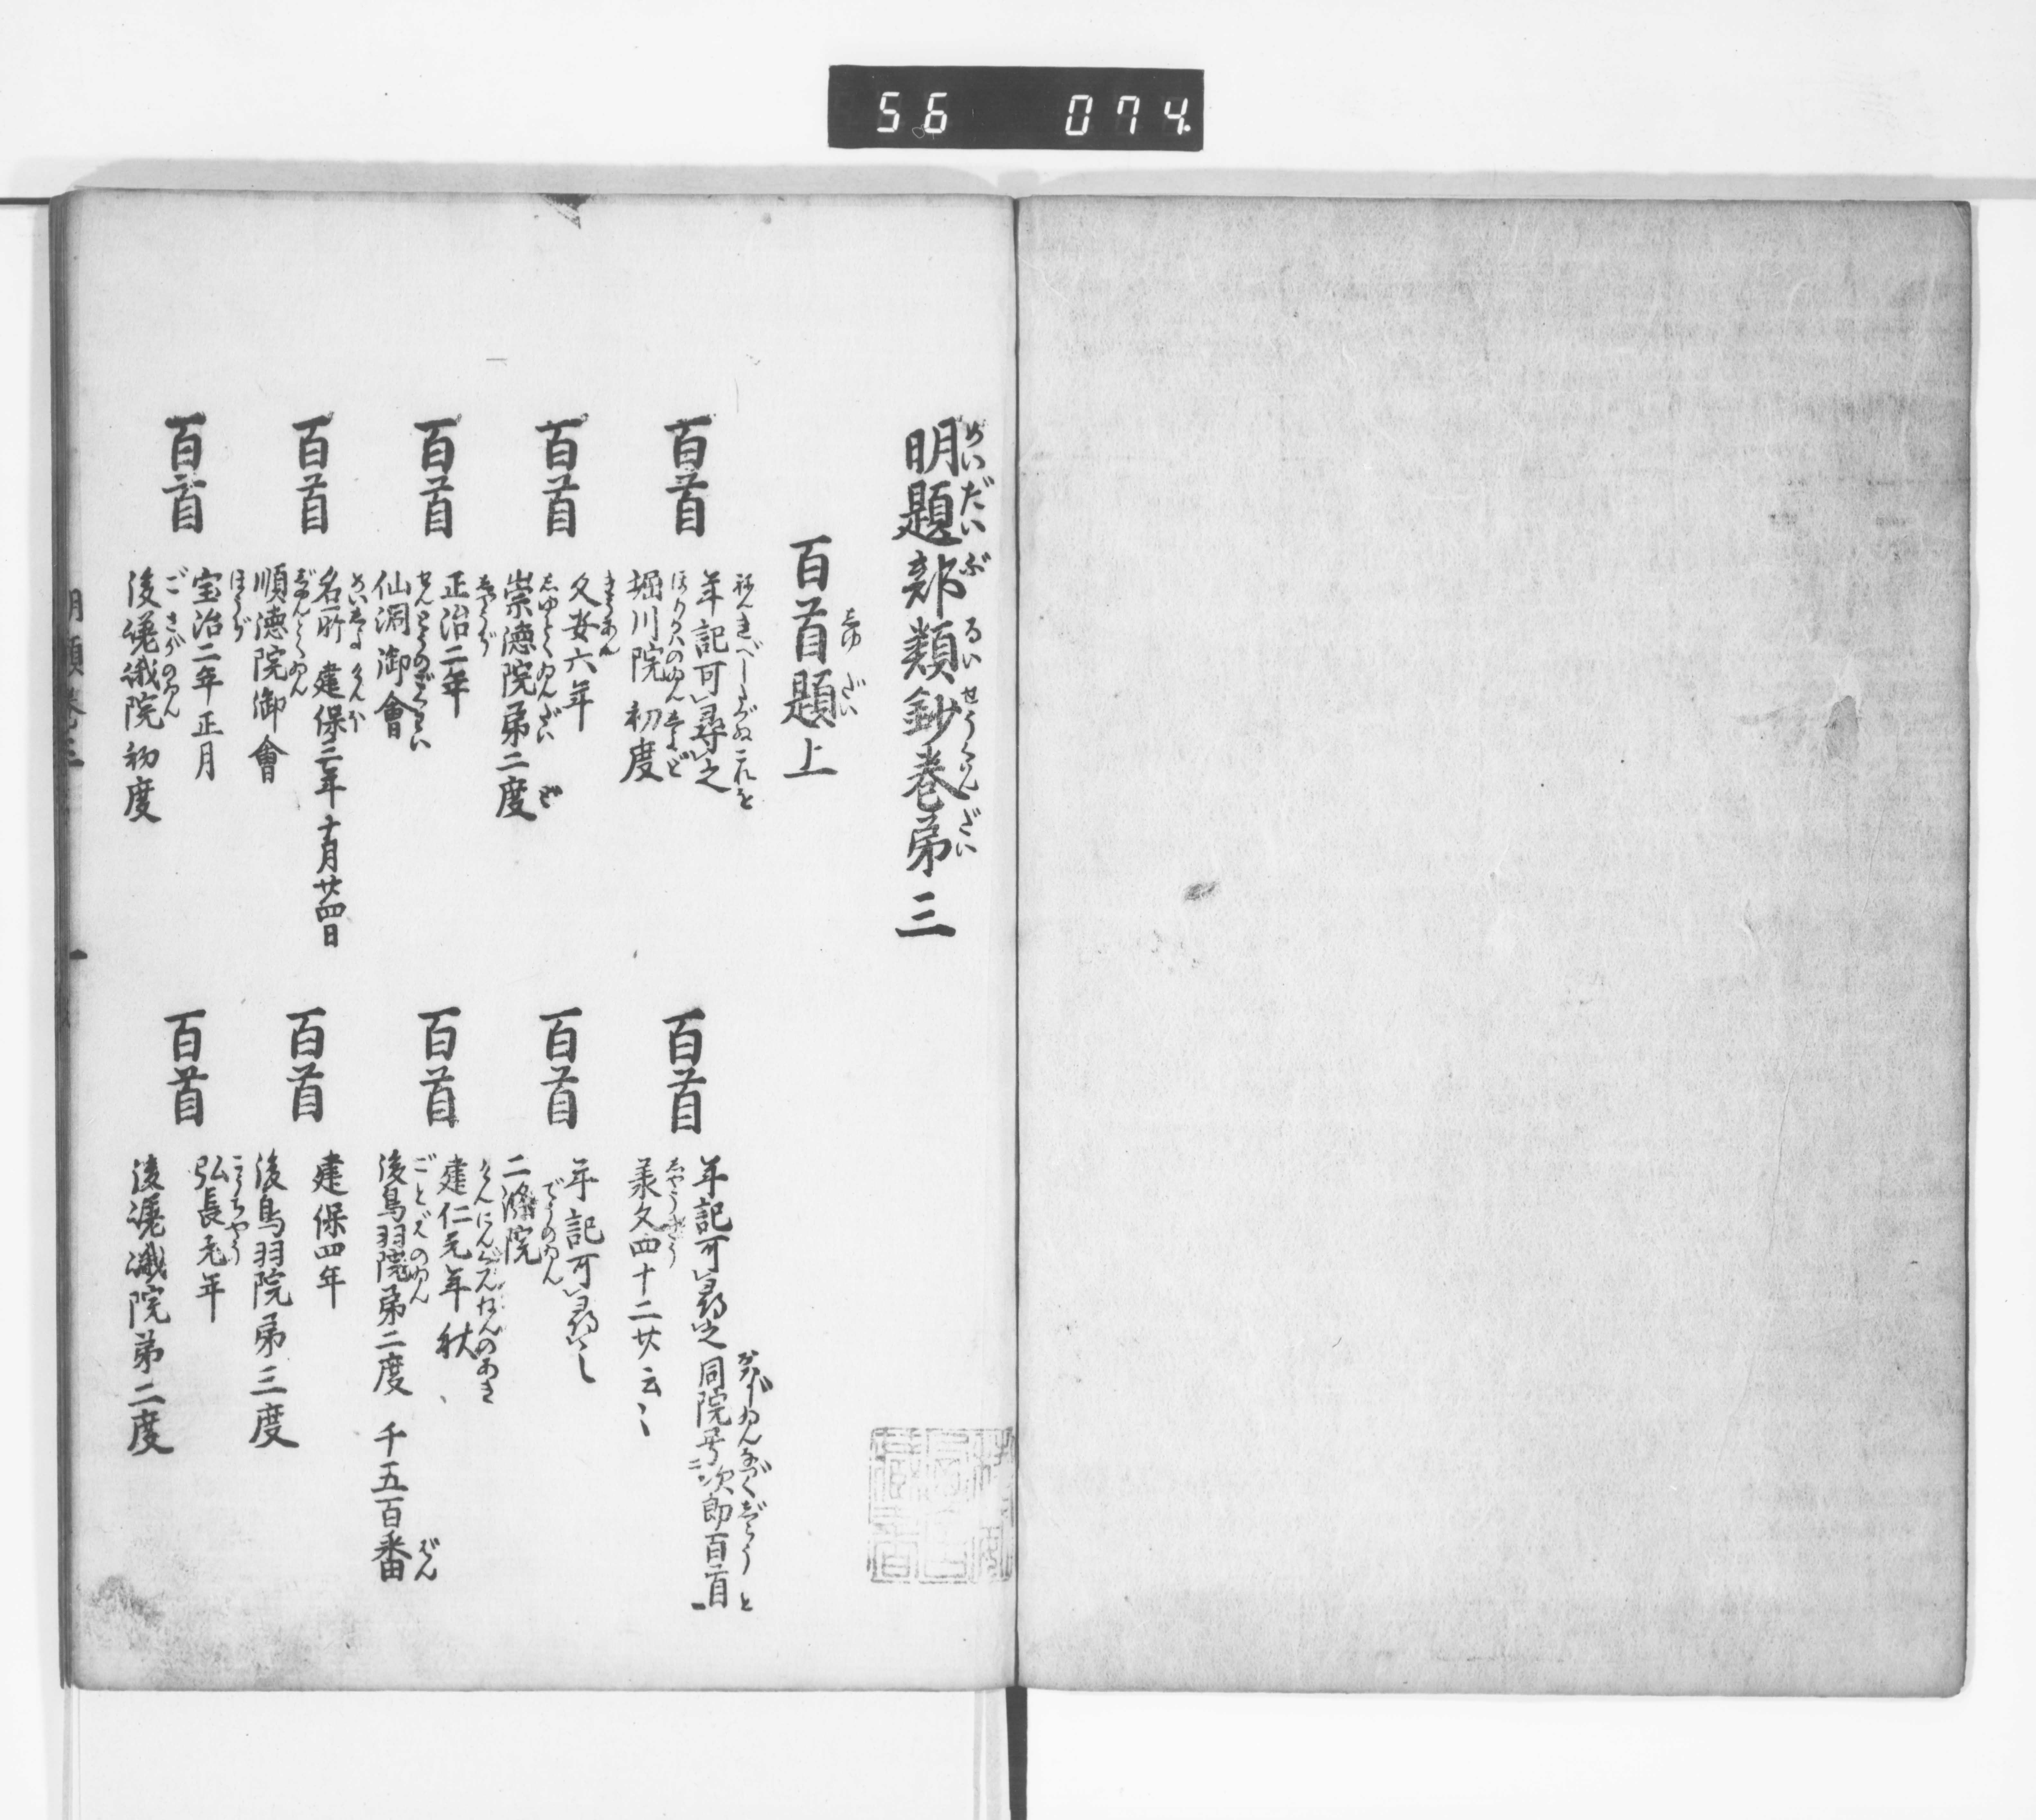 56 074
明題部類鈔巻第三
百首題上
百首 年記可尋之
堀川院 初度
百首 年記可尋之 同院号次郎百首
羕久四十二廿云〻
百首 久安六年
崇徳院第二度
百首 年記可尋之
二條院
百首 正治二年
仙洞御會
百首 建仁元年 秋
後鳥羽院第二度 千五百番
百首 名所 建保三年 十月廿四日
順徳院御會
百首 建保四年
後鳥羽院第三度
百首 宝治二年正月
後嵯峨院 初度
百首 弘長元年
後嵯峨院第二度